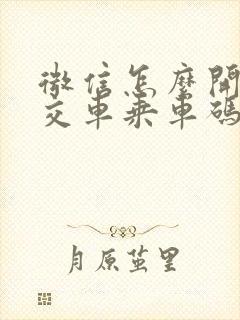 微信怎麼開
交車乗車碼
月原茧里